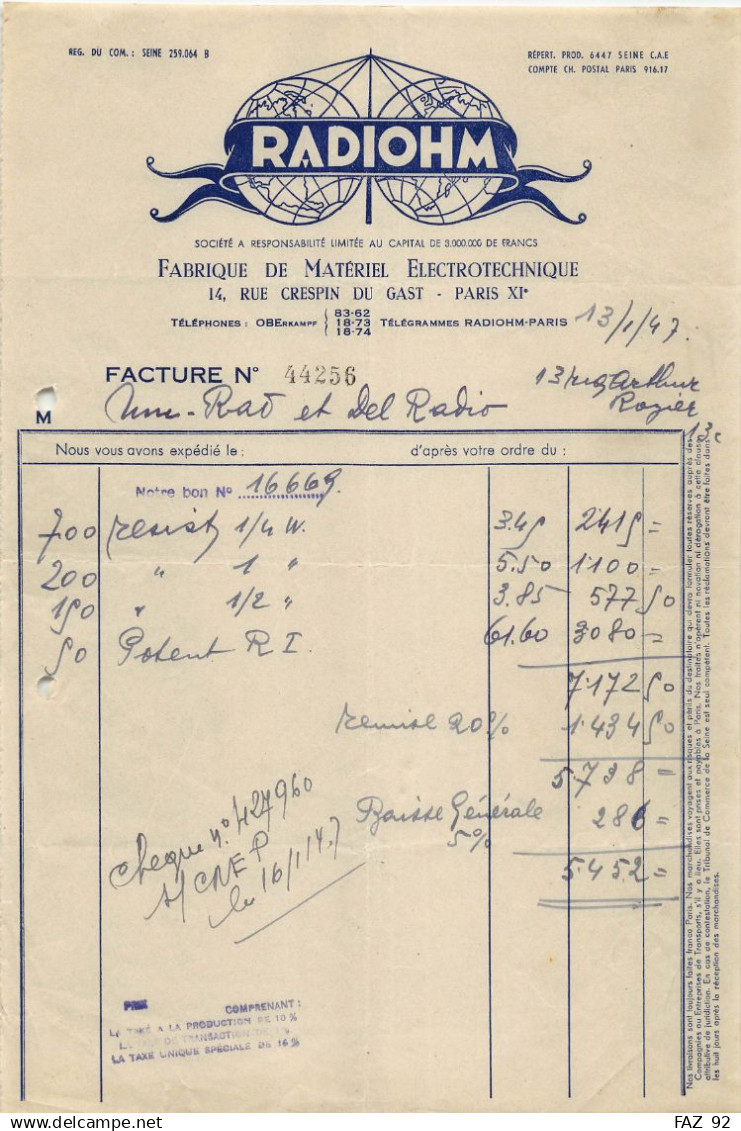 REG. DU COM. : SEINE 259.064 B
RÉPERT. PROD. 6447 SEINE C.A.E
COMPTE CH. POSTAL PARIS 916.17
RADIOHM
SOCIÉTÉ A RESPONSABILITÉ LIMITÉE AU CAPITAL DE 3.000.000 DE FRANCS
FABRIQUE DE MATÉRIEL ELECTROTECHNIQUE
14, RUE CRESPIN DU GAST - PARIS XIe
TÉLÉPHONES : OBERKAMPF { 83-62 18-73 18-74 } TÉLÉGRAMMES RADIOHM-PARIS
13/1/47.
FACTURE N° 44256
13 rue Arthur
Rozier
M Rad et Del Radio
Nous vous avons expédié le : d'après votre ordre du :
Notre bon N° 16669.
700 resist 1/4 W. 3.45 2415 =
200 " 1 " 5.50 1100 =
150 " 1/2 " 3.85 577 50
50 Potent R I. 61.60 3080 =
7.172 50
remise 20% 1.434 50
5.738 =
Baisse Générale 286 =
5%
5.452 =
Cheque n° 424960
s/ CNEP
le 16/1/47
PRIX COMPRENANT :
LA TAXE A LA PRODUCTION DE 10 %
LA TAXE DE TRANSACTION DE %
LA TAXE UNIQUE SPÉCIALE DE 16 %
Nos livraisons sont toujours faites franco Paris. Nos marchandises voyagent aux risques et périls du destinataire qui devra formuler toutes réserves auprès des
Compagnies ou Entreprises de Transports, s'il y a lieu. Elles sont prises et payables à Paris. Nos traités n'opèrent ni novation ni dérogation à cette clause
attributive de juridiction. En cas de contestation, le Tribunal de Commerce de la Seine est seul compétent. Toutes les réclamations devront être faites dans
les huit jours après la réception des marchandises.
FAZ 92